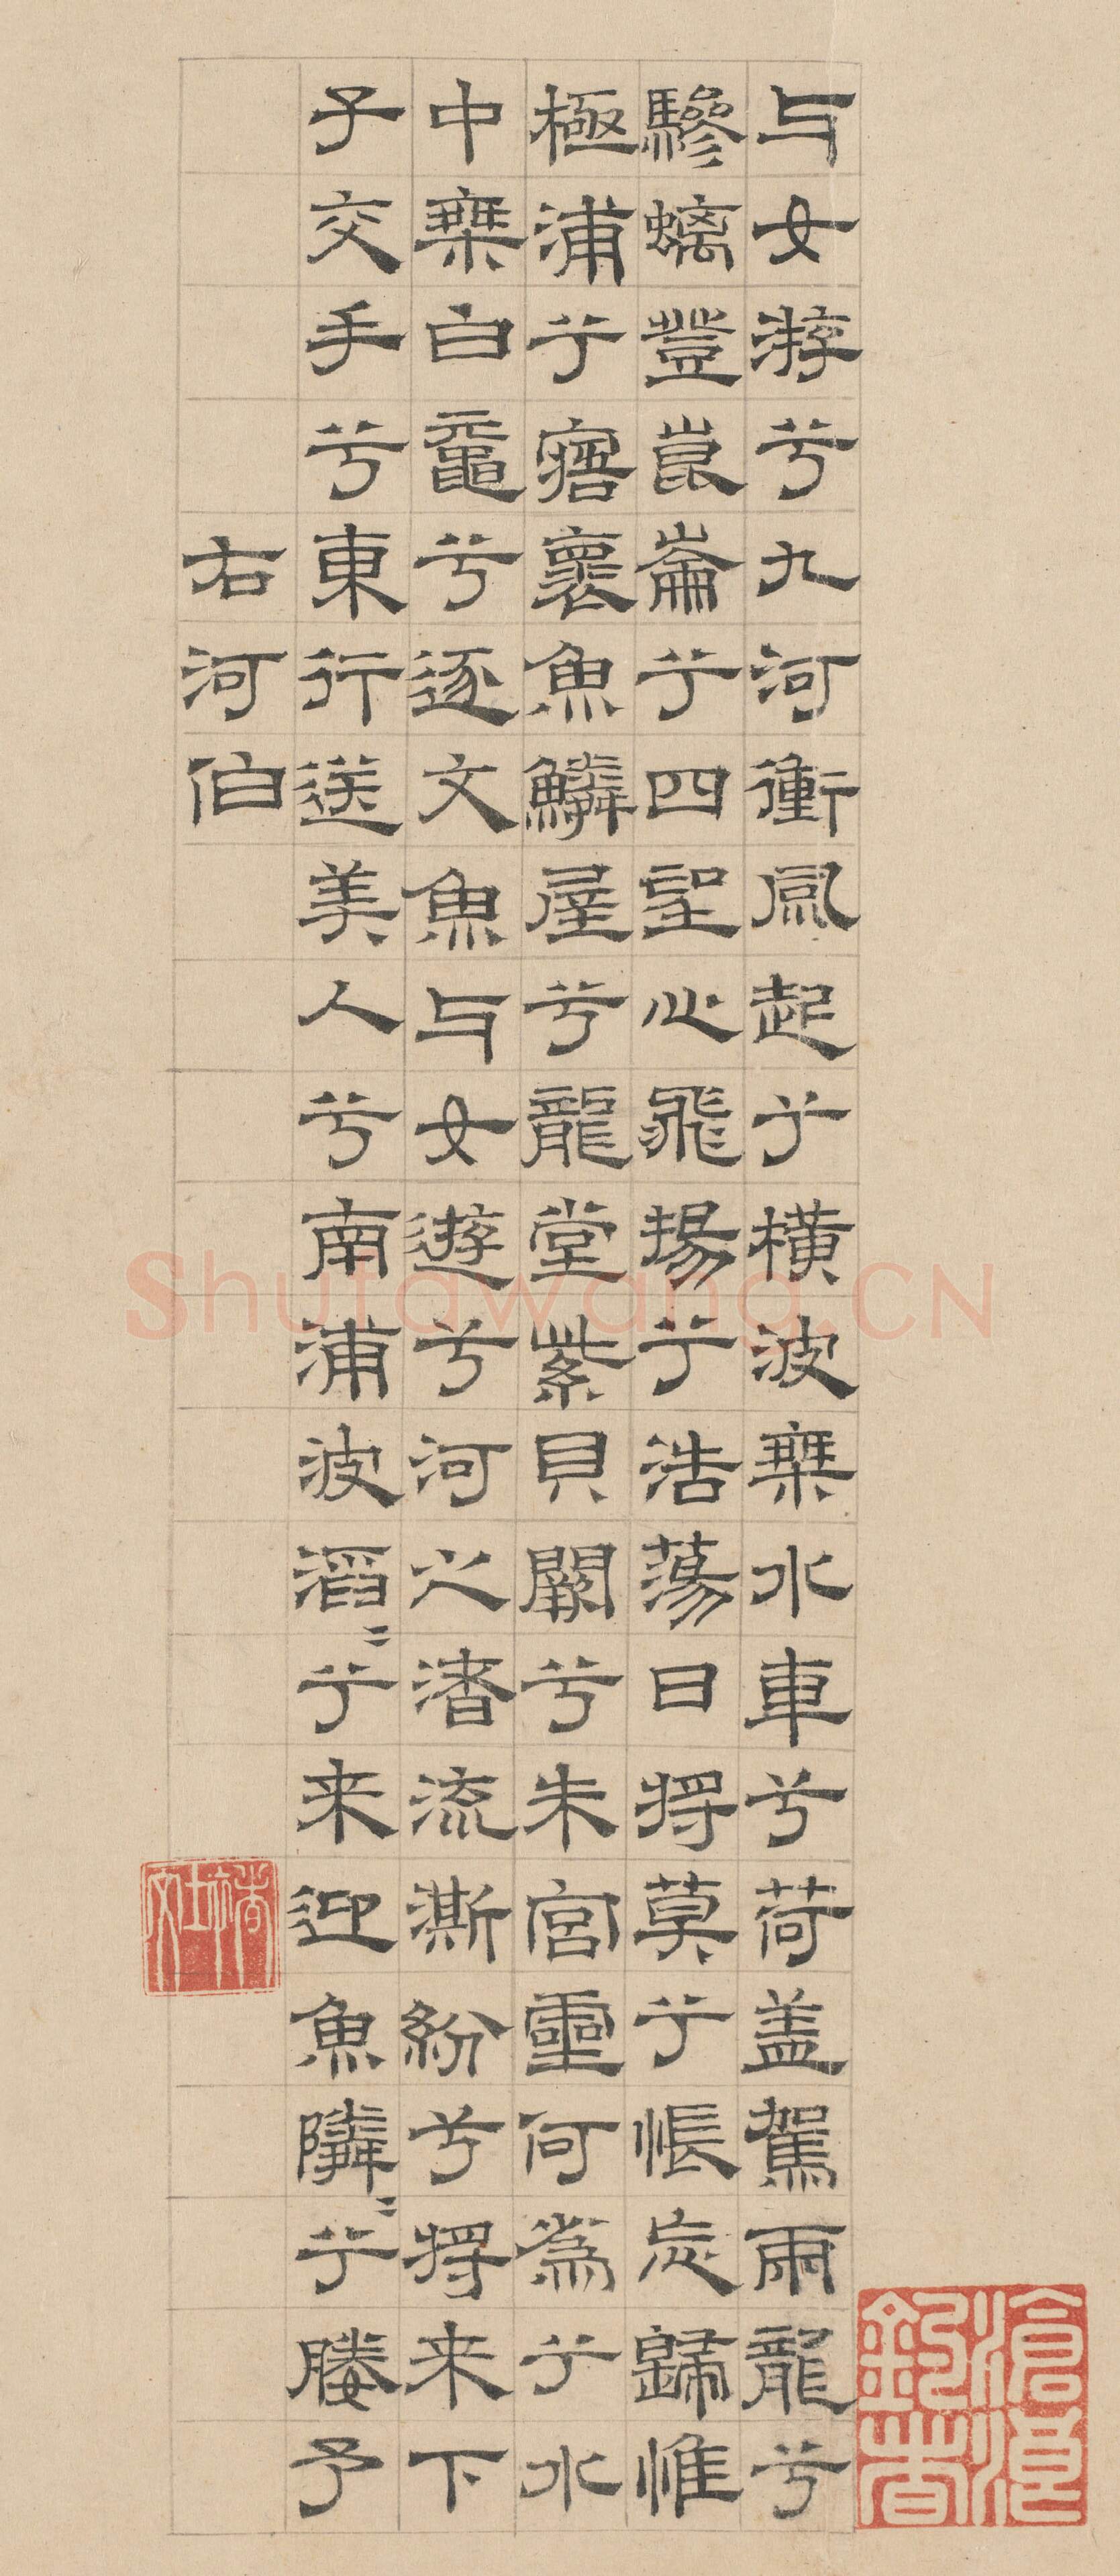 与女游兮九河衝風起兮横波椉水車兮荷盖駕兩龍兮
驂螭登崑崙兮四望心飛揚兮浩蕩日將莫兮悵忘歸惟
極浦兮寤褱魚鱗屋兮龍堂紫貝闕兮朱宮靈何為兮水
中椉白黿兮逐文魚与女遊兮河之渚流澌紛兮將来下
子交手兮東行送美人兮南浦波滔〻兮来迎魚隣〻兮媵予
右河伯
滄浪釣者
Shufawang.CN